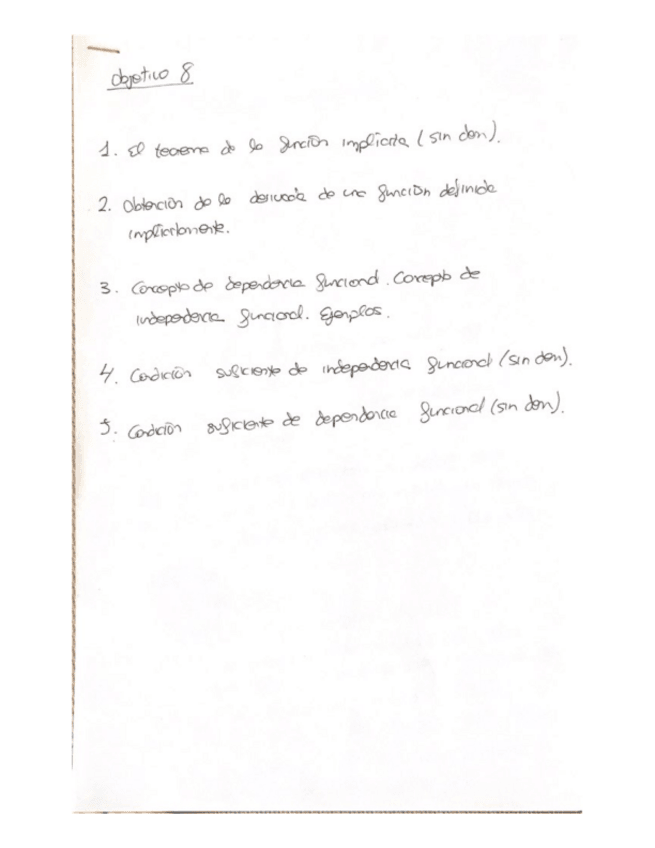 Objetivo 8
1. El teorema de la función implícita (sin dem).
2. Obtención de la derivada de una función definida
implícitamente.
3. Concepto de dependencia funcional. Concepto de
independencia funcional. Ejemplos.
4. Condición suficiente de independencia funcional (sin dem).
5. Condición suficiente de dependencia funcional (sin dem).